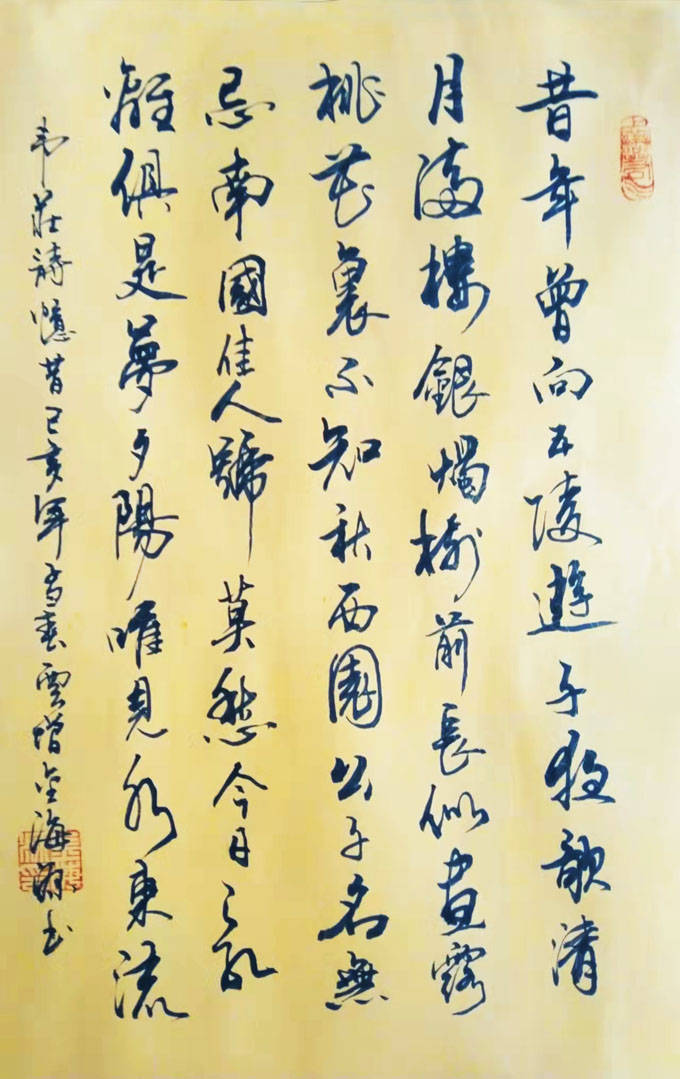 昔年曾向五陵遊子夜歌清
月滿樓銀燭樹前長似晝露
桃花裏不知秋西園公子名無
忌南國佳人號莫愁今日之乱
離俱是夢夕陽唯見水東流
韦莊詩憶昔己亥年春雲海书